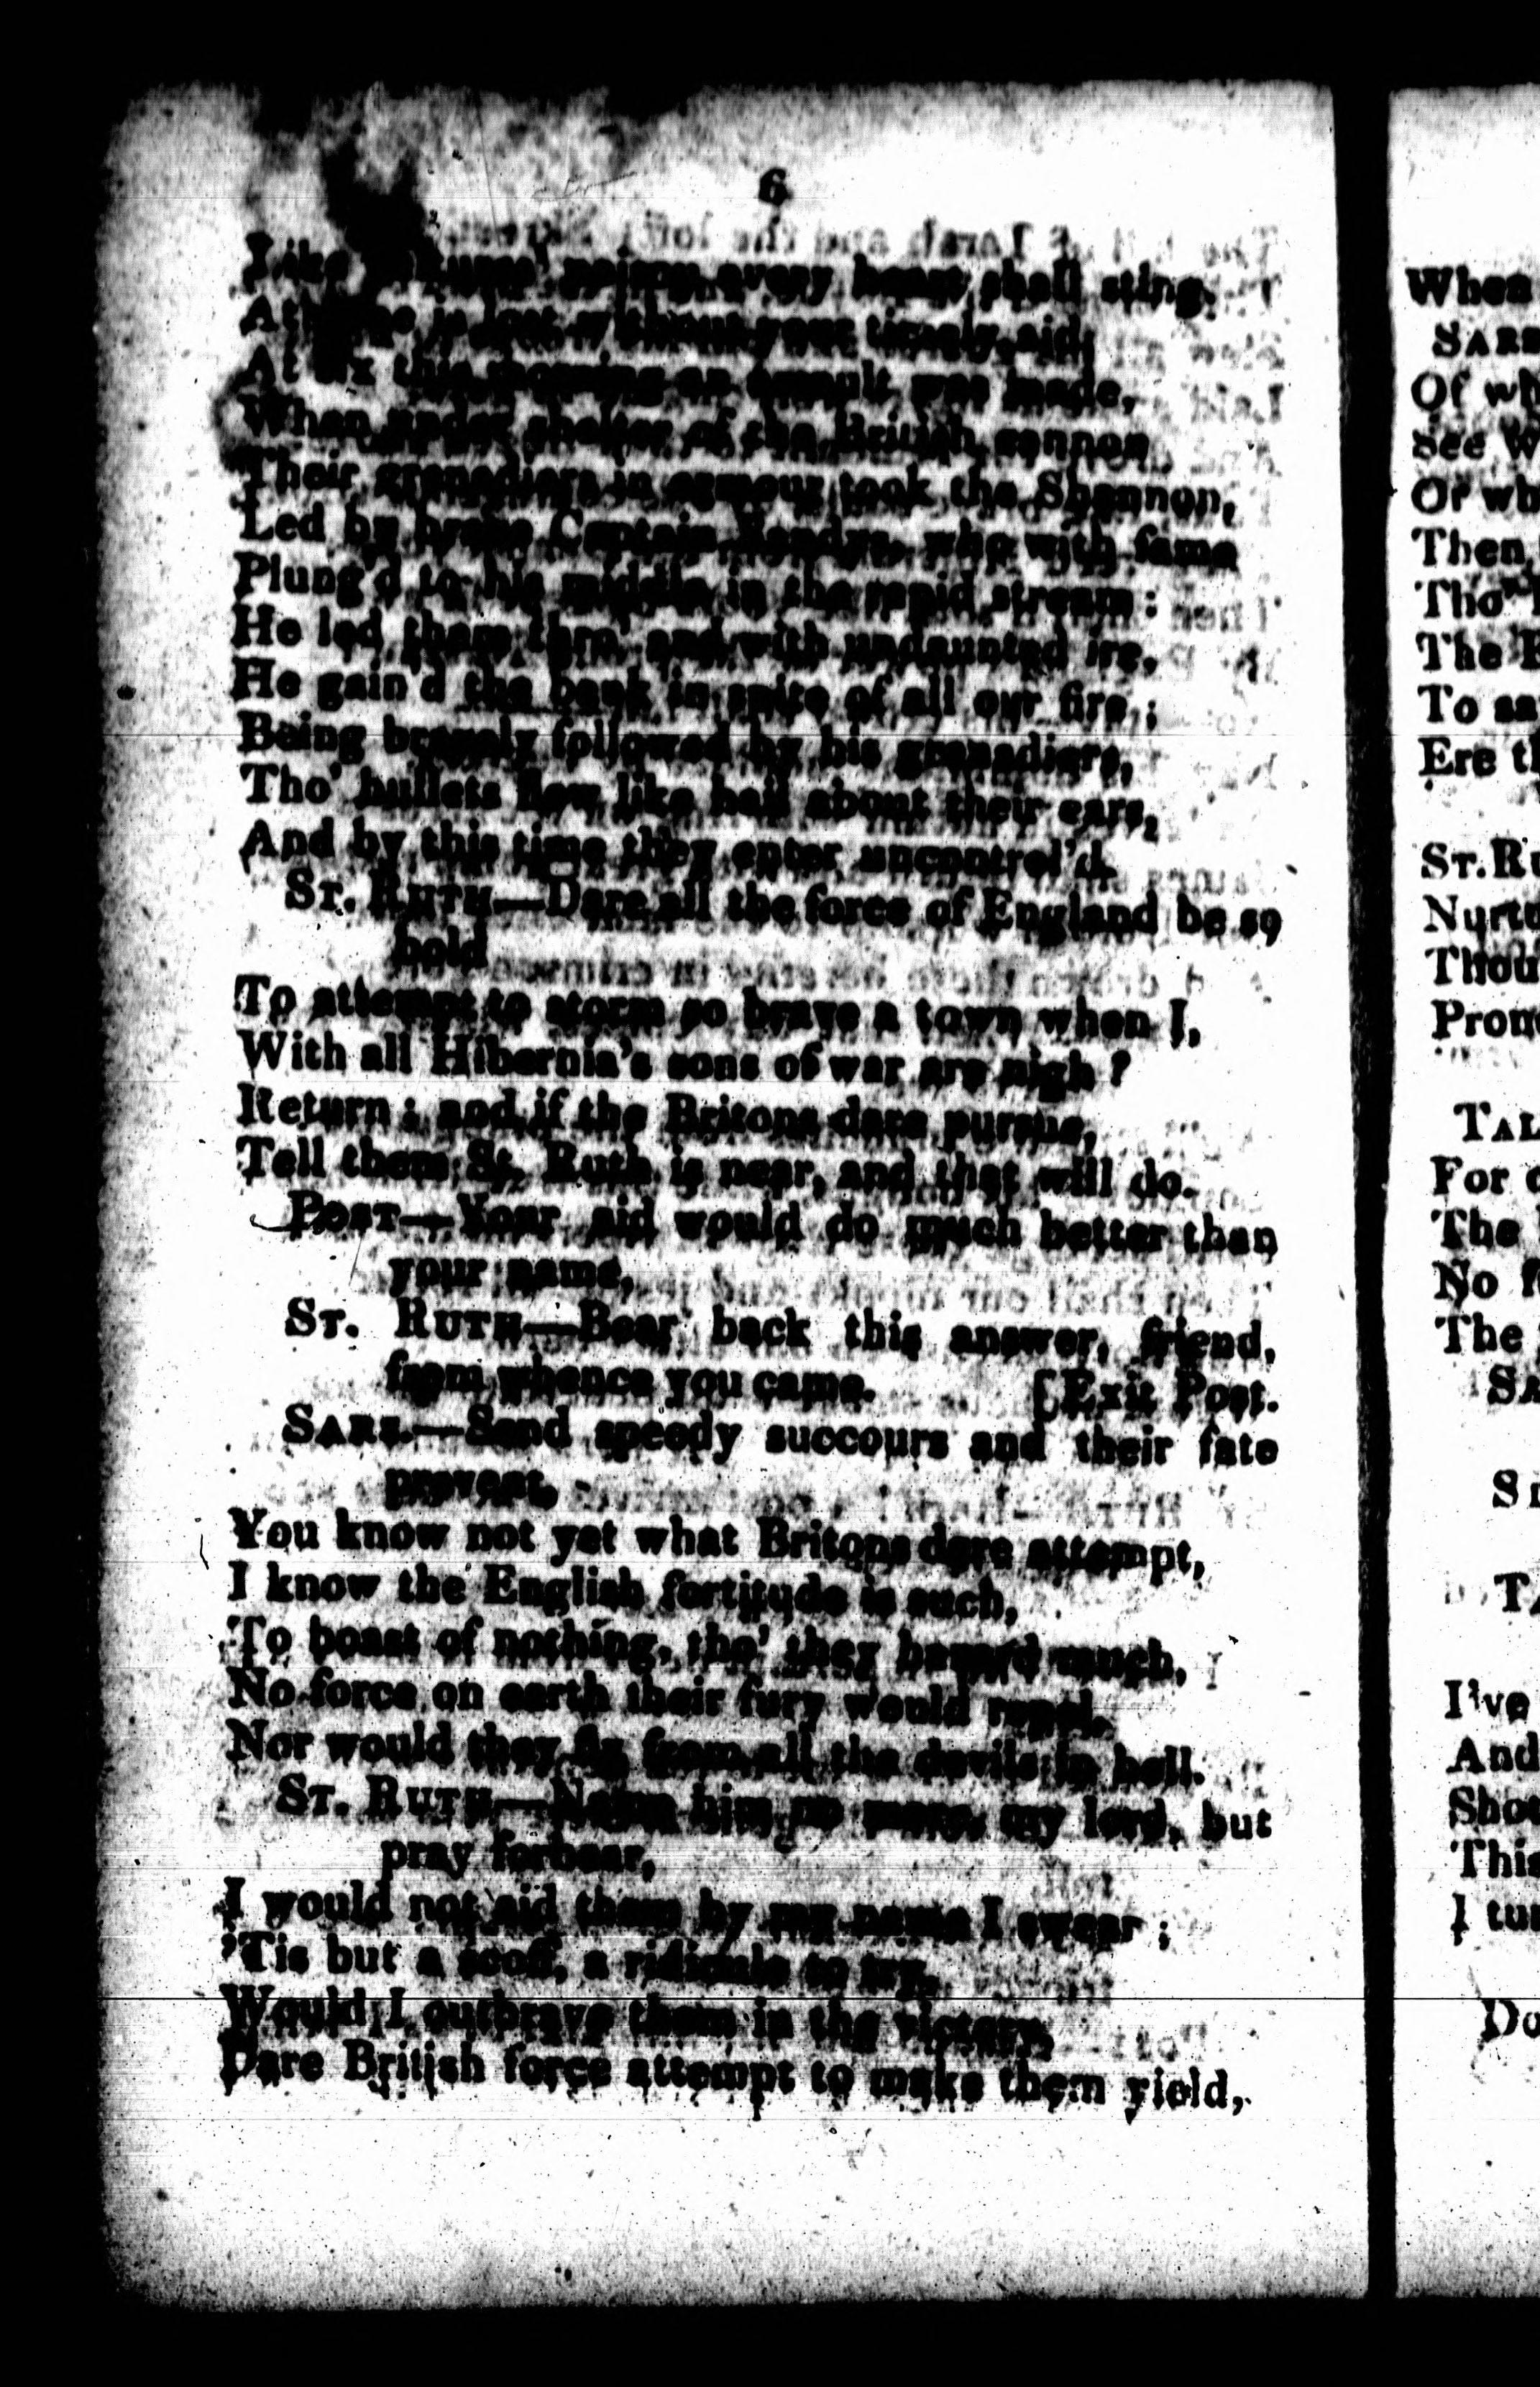 6
Like poison every heart shall sting.
is lost without your timely aid,
At six this morning an assault was made,
When under shelter of the British cannon
Their grenadiers in armour took the Shannon,
Led by brave Captain Sandys, who with fame
Plung'd to his middle in the rapid stream:
He led them thro', and with undaunted ire,
He gain'd the bank in spite of all our fire;
Being bravely followed by his grenadiers,
Tho' bullets flew like hail about their ears,
And by this time they enter uncontrol'd.
ST. RUTH—Dare all the force of England be so
bold
To attempt to storm so brave a town when I,
With all Hibernia's sons of war are nigh?
Return; and if the Britons dare pursue,
Tell them St. Ruth is near, and that will do.
POST—Your aid would do much better than
your name,
ST. RUTH—Bear back this answer, friend,
from whence you came. [Exit Post.
SARS.—Send speedy succours and their fate
prevent,
You know not yet what Britons dare attempt,
I know the English fortitude is such,
To boast of nothing, tho' they hazard much,
No force on earth their fury would repel,
Nor would they fly from all the devils in hell.
ST. RUTH—Name him no more, my lord, but
pray forbear,
I would not aid them by my name I swear;
'Tis but a scoff, a ridicule to try,
Would I outbrave them in the victory,
Dare British force attempt to make them yield,
When
SARS
Of wh
See W
Or wh
Then
Tho'
The
To
Ere th
ST. RU
Nurt
Thou
Prom
TAL
For
The
No
The
SA
S
T
I've
And
Sho
This
I tu
Do